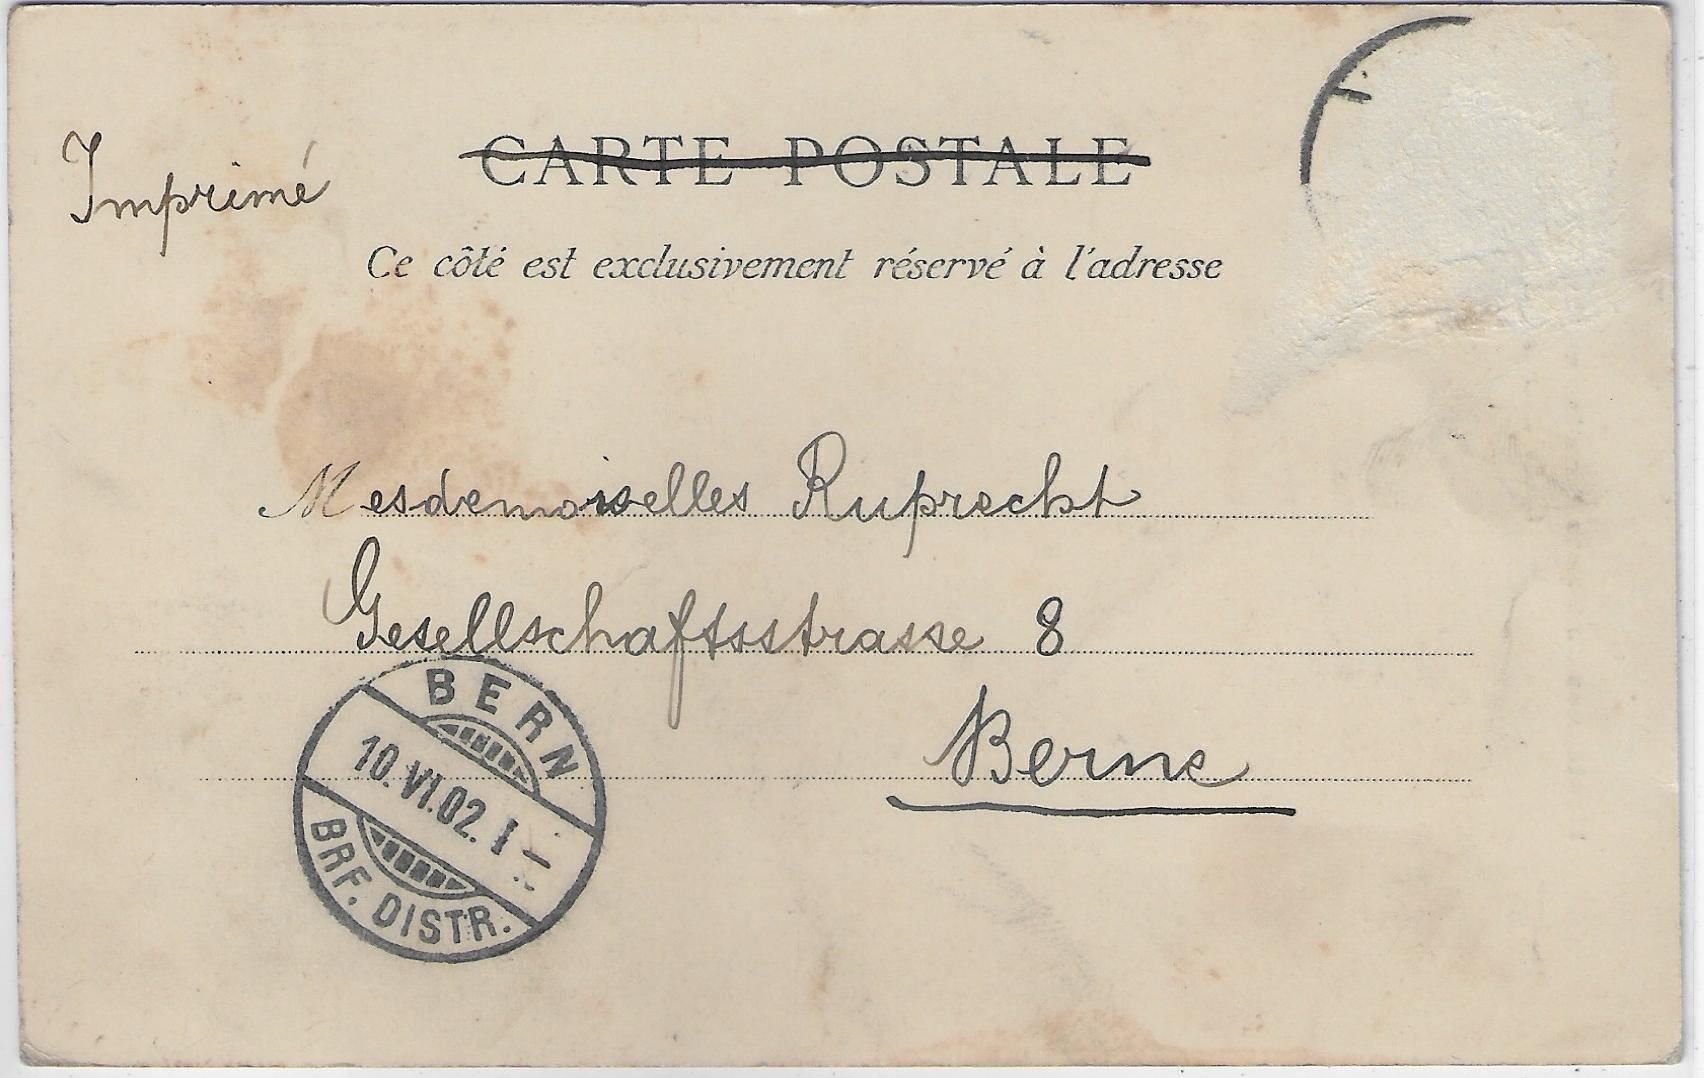 Imprimé
CARTE POSTALE
Ce côté est exclusivement réservé à l'adresse
Mesdemoiselles Ruprecht
Gesellschaftsstrasse 8
Berne
BERN
10.VI.02. I
BRF. DISTR.